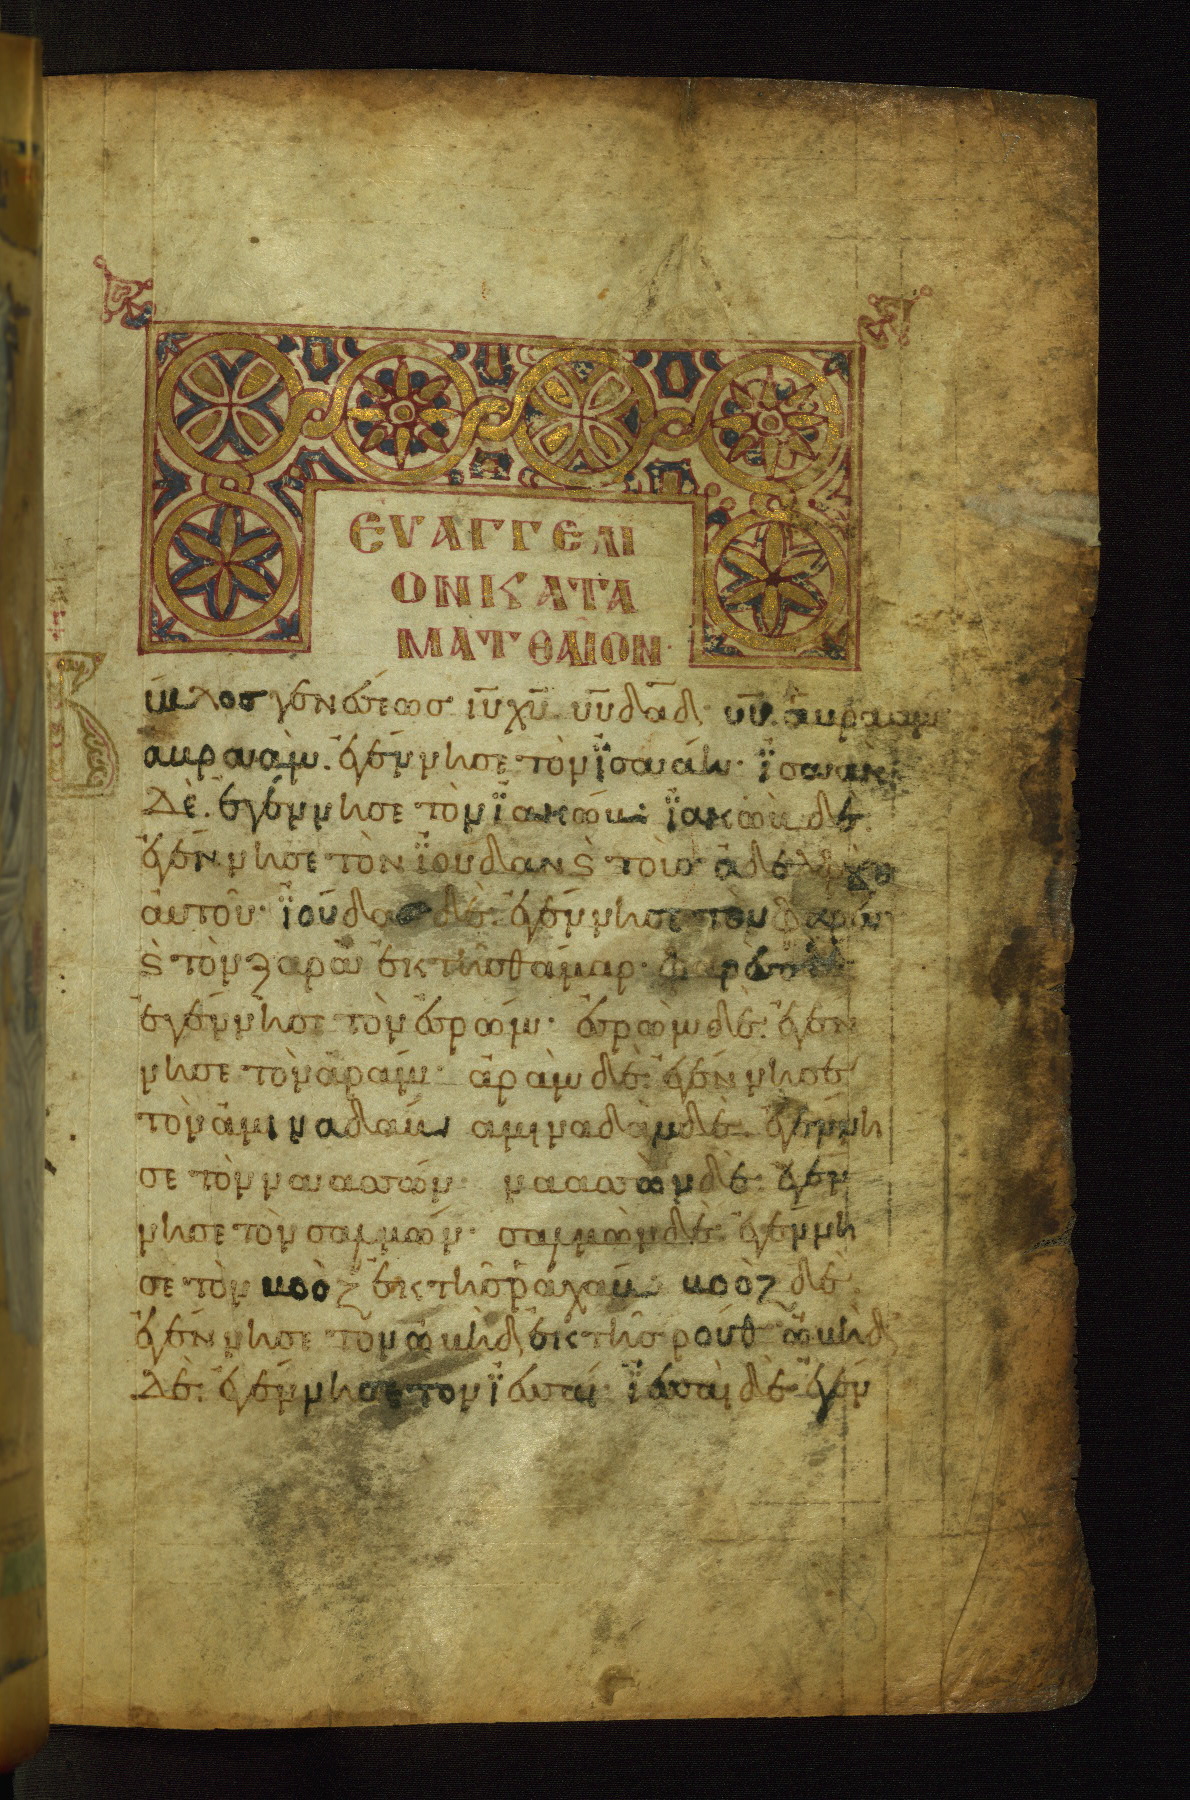 ΕΥΑΓΓΕΛΙ
ΟΝ ΚΑΤΑ
ΜΑΤΘΑΙΟΝ
Βίβλος γενέσεως ιυ χυ υυ δαδ υυ ἀβρααμ
αβρααμ. ἐγέννησε τὸν ϊσαάκ· ϊσαακ
δὲ. ἐγέννησε τὸν ϊακώβ· ϊακωβ δὲ
ἐγέννησε τὸν ϊούδαν ϛ τοὺσ ἀδελφοὺσ
ἀυτοῦ· ϊούδασ δὲ. ἐγέννησε τὸν φαρὲσ
ϛ τὸν ζαρὰ ἐκ τῆσ θάμαρ· φαρὲσ δὲ
ἐγέννησε τὸν ἐσρώμ· ἐσρὼμ δὲ. ἐγέν
νησε τὸν ἀράμ· ἀρὰμ δὲ. ἐγέννησε
τὸν ἀμιναδάβ αμιναδὰμ δὲ. ἐγέννη
σε τὸν ναασσών· ναασσων δὲ. ἐγέν
νησε τὸν σαλμών· σαλμὼν δὲ. ἐγέννη
σε τὸν βοὸζ ἐκ τῆσ ῥαχάβ βοὸζ δὲ.
ἐγέννησε τὸν ὠβὴδ ἐκ τῆσ ρούθ ὠβὴδ
δὲ. ἐγέννησε τον ϊεσσαί· ϊεσσαὶ δὲ ἐγέν